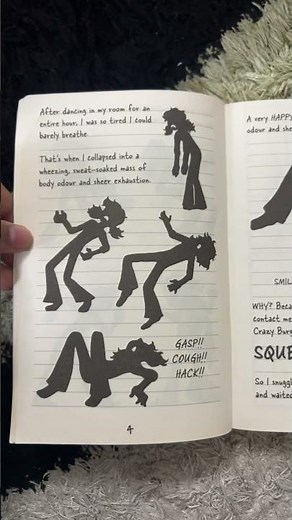 After dancing in my room for an
entire hour, I was so tired I could
barely breathe.
That's when I collapsed into a
wheezing, sweat-soaked mass of
body odour and sheer exhaustion.
GASP!!
COUGH!!
HACK!!
4
A very HAPPY
odour and she
SMIL
WHY? Beca
contact me
Crazy Burg
SQUE
So I snuggl
and waited